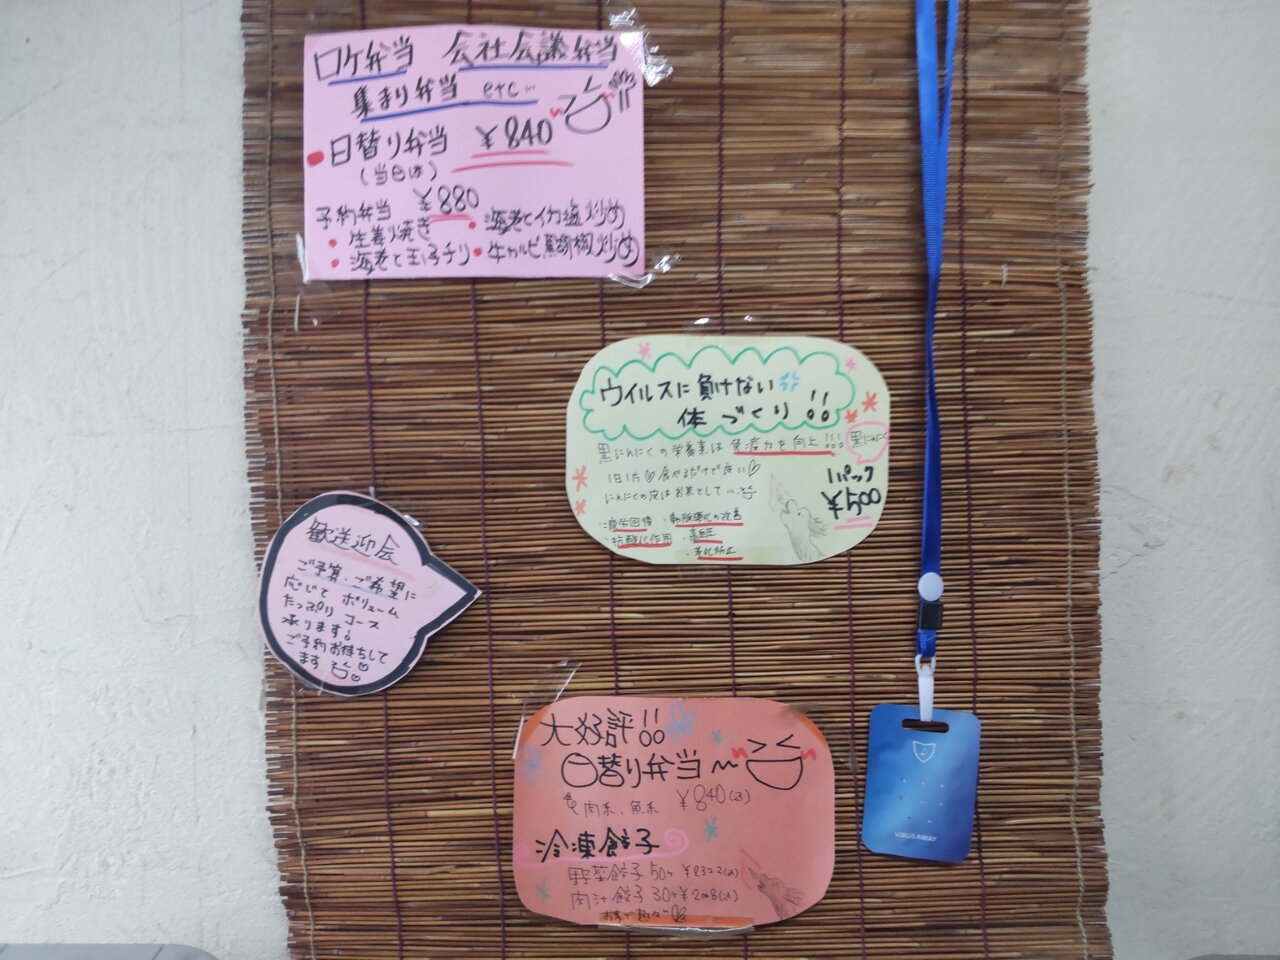 ロケ弁当 会社会議弁当
集まり弁当 etc
日替り弁当 ¥840
(当日は)
予約弁当 ¥880
・生姜焼き ・海老とイカ塩炒め
・海老と玉子チリ ・牛カルビ黒胡椒炒め
ウイルスに負けない
体づくり!!
黒にんにくの栄養素は免疫力を向上!!!
黒にんにく
1日1片♡食べるだけで良い♡
にんにくの皮はお茶として
1パック
¥500
・疲労回復 ・動脈硬化の改善
・抗酸化作用 ・高血圧
・老化防止
歓送迎会
ご予算、ご希望に
応じて ボリューム
たっぷり コース
承ります!
ご予約お待ちして
ます
大好評!!
日替り弁当〜
肉系、魚系 ¥840(込)
冷凍餃子
野菜餃子 50ヶ (込)
肉汁餃子 30ヶ (込)
VIRUS AWAY